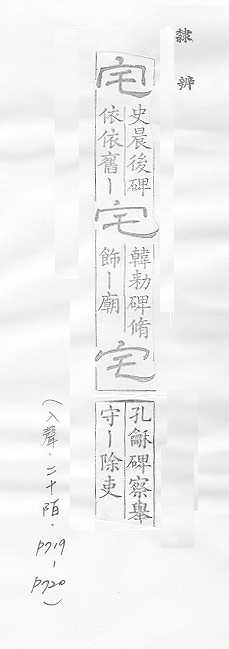 隸辨
宅
史晨後碑
依依舊ー
宅
韓勑碑脩
飾ー廟
宅
孔龢碑察舉
守ー除吏
(入聲·二十陌·P719-P720)